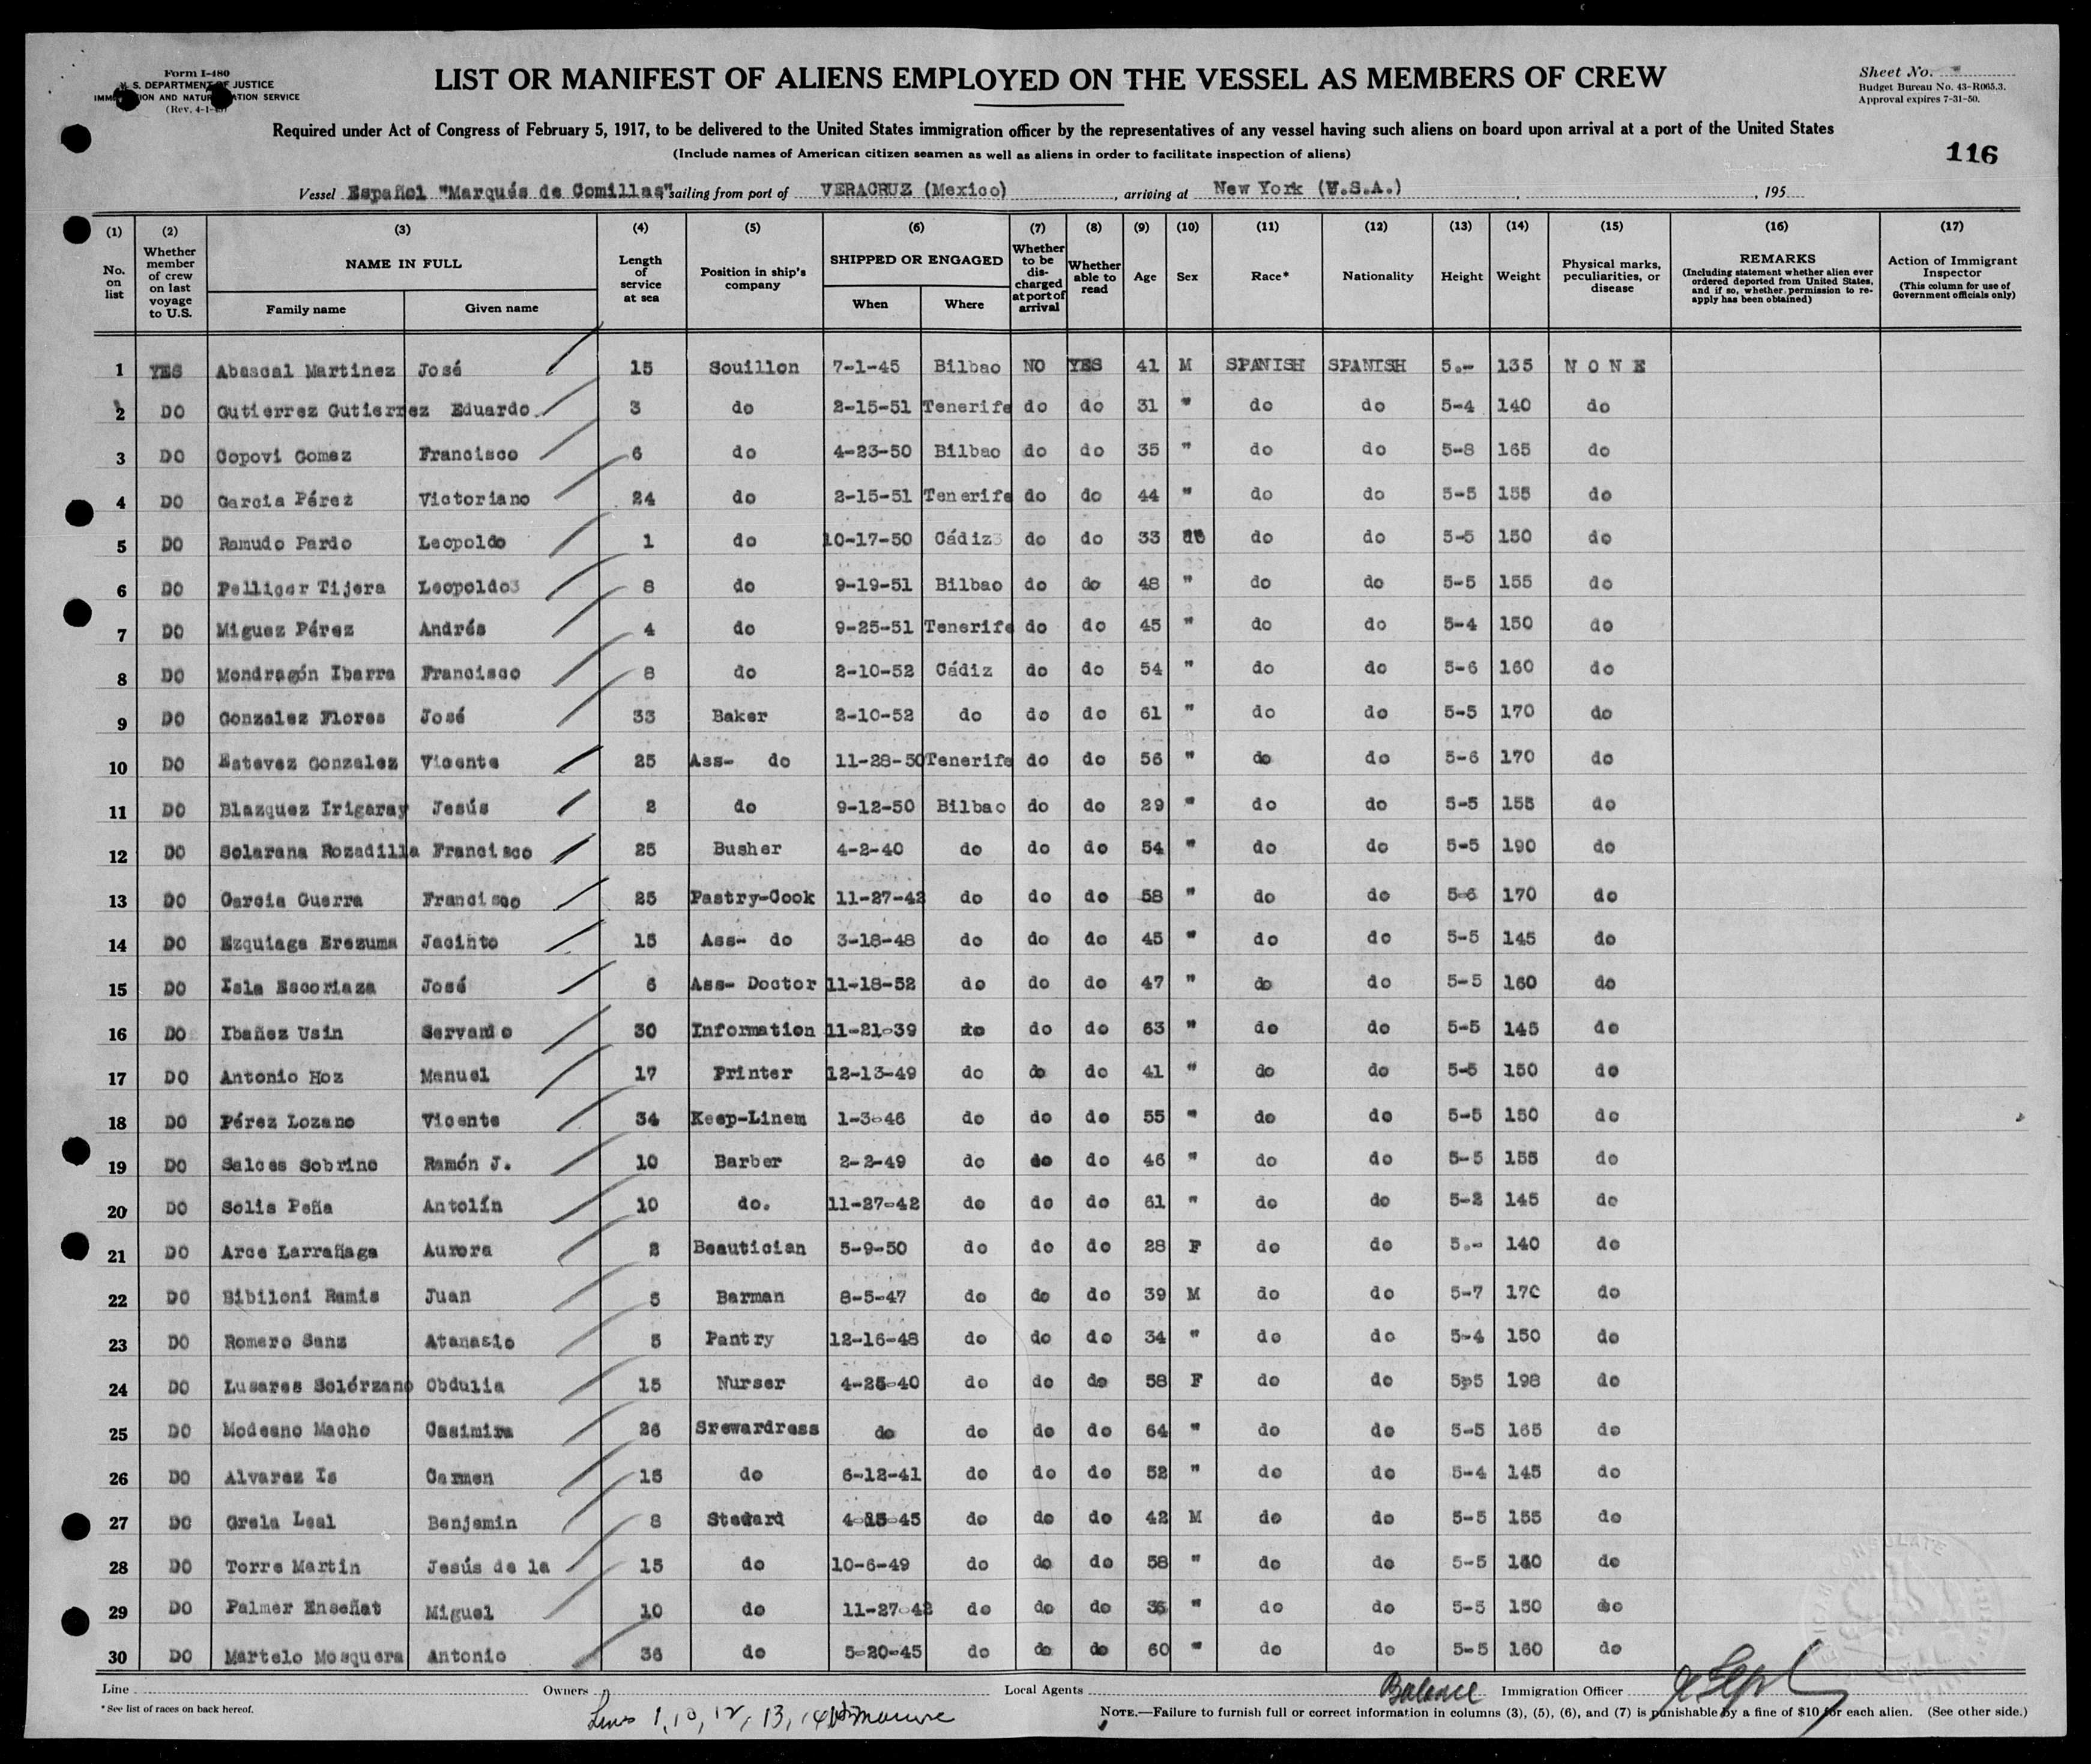 Form I-480
U. S. DEPARTMENT OF JUSTICE
IMMIGRATION AND NATURALIZATION SERVICE
(Rev. 4-1-
LIST OR MANIFEST OF ALIENS EMPLOYED ON THE VESSEL AS MEMBERS OF CREW
Sheet No.
Budget Bureau No. 43-R065.3.
Approval expires 7-31-50.
Required under Act of Congress of February 5, 1917, to be delivered to the United States immigration officer by the representatives of any vessel having such aliens on board upon arrival at a port of the United States
(Include names of American citizen seamen as well as aliens in order to facilitate inspection of aliens)
116
Vessel Español "Marqués de Comillas" sailing from port of VERACRUZ (Mexico), arriving at New York (U.S.A.), 195
(1) (2) (3) (4) (5) (6) (7) (8) (9) (10) (11) (12) (13) (14) (15) (16) (17)
No. on list
Whether member of crew on last voyage to U.S.
NAME IN FULL
Family name
Given name
Length of service at sea
Position in ship's company
SHIPPED OR ENGAGED
When
Where
Whether to be discharged at port of arrival
Whether able to read
Age
Sex
Race*
Nationality
Height
Weight
Physical marks, peculiarities, or disease
REMARKS
(Including statement whether alien ever ordered deported from United States, and if so, whether permission to reapply has been obtained)
Action of Immigrant Inspector
(This column for use of Government officials only)
1 YES Abascal Martinez José 15 Souillon 7-1-45 Bilbao NO YES 41 M SPANISH SPANISH 5.- 135 N O N E
2 DO Gutierrez Gutierrez Eduardo 3 do 2-15-51 Tenerife do do 31 " do do 5-4 140 do
3 DO Copovi Gomez Francisco 6 do 4-23-50 Bilbao do do 35 " do do 5-8 165 do
4 DO Garcia Pérez Victoriano 24 do 2-15-51 Tenerife do do 44 " do do 5-5 155 do
5 DO Ramudo Pardo Leopoldo 1 do 10-17-50 Cádiz do do 33 do do do 5-5 150 do
6 DO Pelliger Tijera Leopoldo 8 do 9-19-51 Bilbao do do 48 " do do 5-5 155 do
7 DO Miguez Pérez Andrés 4 do 9-25-51 Tenerife do do 45 " do do 5-4 150 do
8 DO Mondragón Ibarra Francisco 8 do 2-10-52 Cádiz do do 54 " do do 5-6 160 do
9 DO Gonzalez Flores José 33 Baker 2-10-52 do do do 61 " do do 5-5 170 do
10 DO Estevez Gonzalez Vicente 25 Ass- do 11-28-50 Tenerife do do 56 " do do 5-6 170 do
11 DO Blazquez Irigaray Jesús 2 do 9-12-50 Bilbao do do 29 " do do 5-5 155 do
12 DO Solarana Rozadilla Francisco 25 Busher 4-2-40 do do do 54 " do do 5-5 190 do
13 DO Garcia Guerra Francisco 25 Pastry-Cook 11-27-42 do do do 58 " do do 5-6 170 do
14 DO Ezquiaga Erezuma Jacinto 15 Ass- do 3-18-48 do do do 45 " do do 5-5 145 do
15 DO Isla Escoriaza José 6 Ass- Doctor 11-18-52 do do do 47 " do do 5-5 160 do
16 DO Ibañez Usin Servando 30 Information 11-21-39 do do do 63 " do do 5-5 145 do
17 DO Antonio Hoz Manuel 17 Printer 12-13-49 do do do 41 " do do 5-5 150 do
18 DO Pérez Lozano Vicente 34 Keep-Linem 1-3-46 do do do 55 " do do 5-5 150 do
19 DO Salces Sobrino Ramón J. 10 Barber 2-2-49 do do do 46 " do do 5-5 155 do
20 DO Solis Peña Antolín 10 do. 11-27-42 do do do 61 " do do 5-2 145 do
21 DO Arce Larrañaga Aurora 2 Beautician 5-9-50 do do do 28 F do do 5.- 140 do
22 DO Bibiloni Ramis Juan 5 Barman 8-5-47 do do do 39 M do do 5-7 170 do
23 DO Romero Sanz Atanasio 5 Pantry 12-16-48 do do do 34 " do do 5-4 150 do
24 DO Lusares Solórzano Obdulia 15 Nurser 4-25-40 do do do 58 F do do 5-5 198 do
25 DO Modesno Macho Casimira 26 Srewardress do do do do 64 " do do 5-5 165 do
26 DO Alvarez Is Carmen 15 do 6-12-41 do do do 52 " do do 5-4 145 do
27 DO Grela Leal Benjamin 8 Steward 4-15-45 do do do 42 M do do 5-5 155 do
28 DO Torre Martin Jesús de la 15 do 10-6-49 do do do 58 " do do 5-5 do
29 DO Palmer Enseñat Miguel 10 do 11-27-42 do do do 36 " do do 5-5 150 do
30 DO Martelo Mosquera Antonio 36 do 5-20-45 do do do 60 " do do 5-5 160 do
Line Owners Local Agents Balance Immigration Officer
*See list of races on back hereof.
Lines 1, 10, 12, 13, 14
NOTE.—Failure to furnish full or correct information in columns (3), (5), (6), and (7) is punishable by a fine of $10 for each alien. (See other side.)